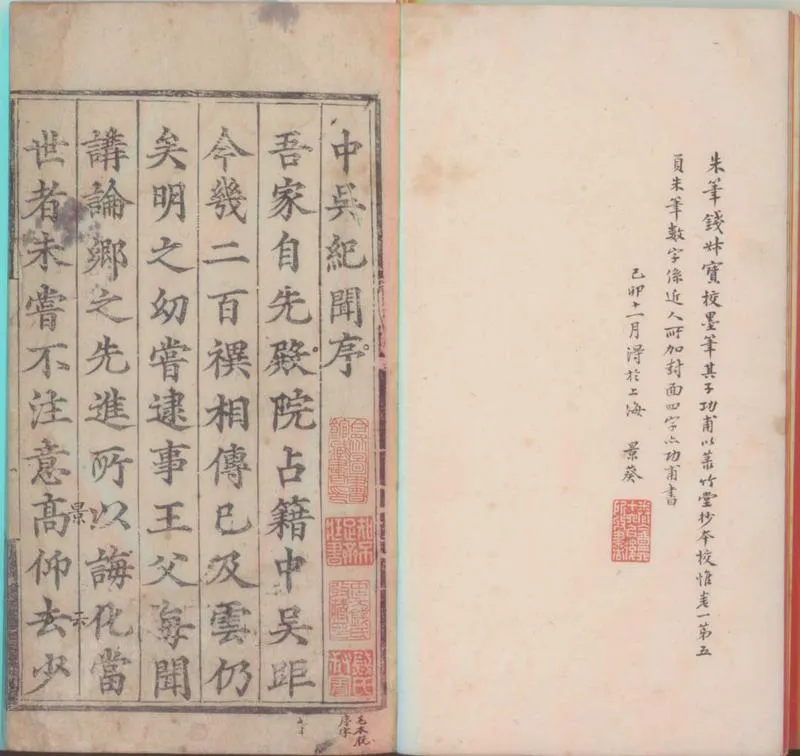 朱筆錢叔寶校墨筆其子功甫以菉竹堂抄本校惟卷一第五
頁朱筆數字係近人所加封面四字亦功甫書
己卯十一月得於上海 景葵
中吳紀聞序
吾家自先殿院占籍中吳距
今幾二百禩相傳已及雲仍
矣明之幼嘗逮事王父每聞
講論鄉之先進所以誨化當
世者未嘗不注意高仰去少
景
示
毛本脫
序字